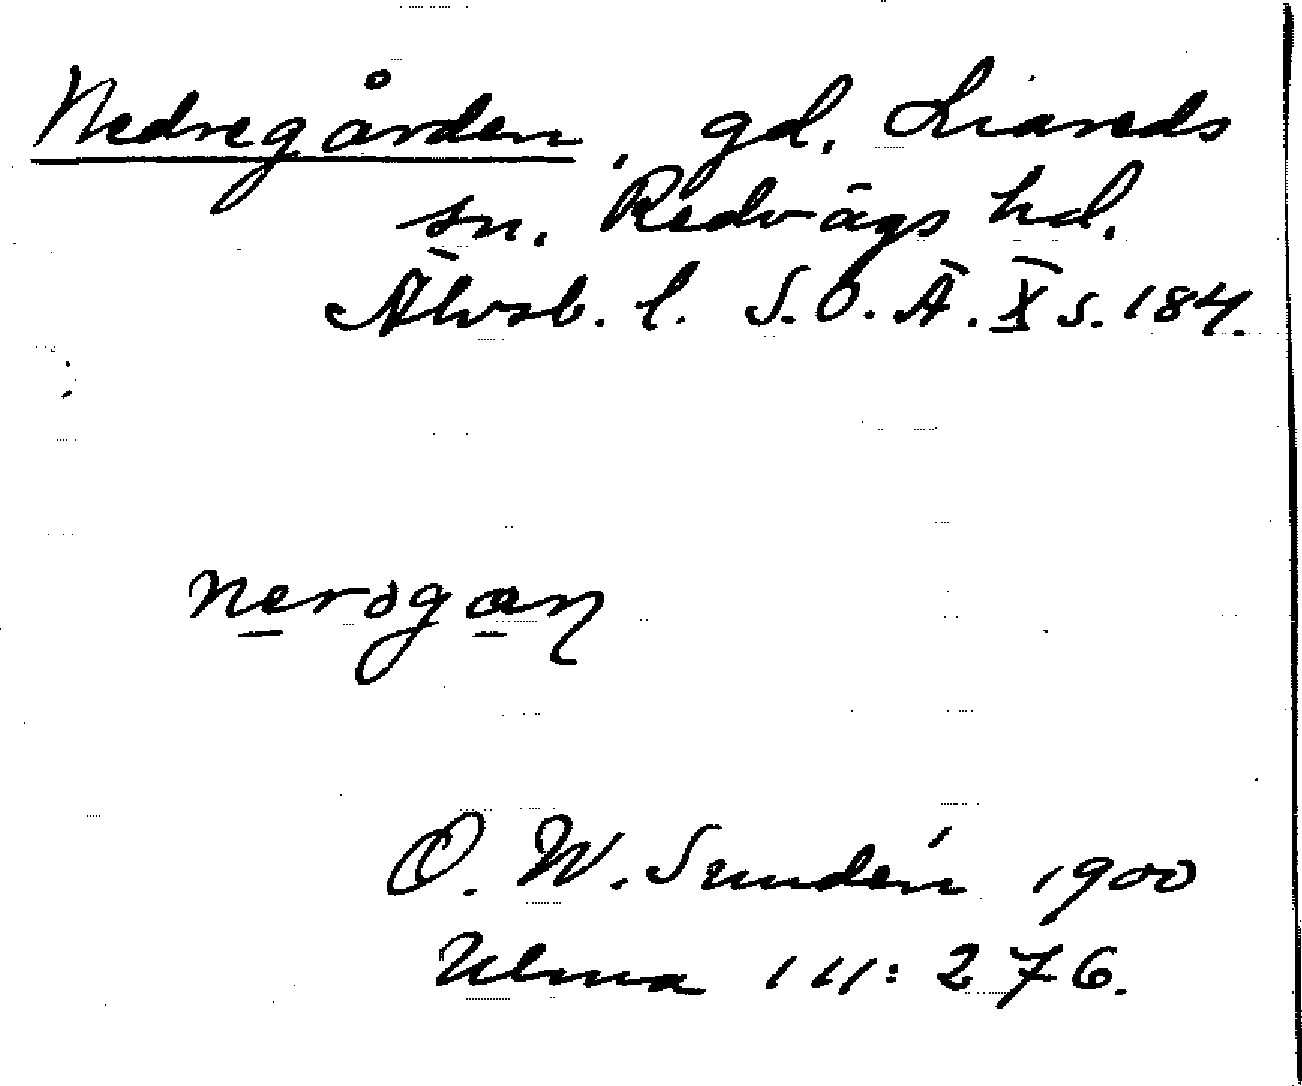 Nedregården, gd. Liareds
sn. Redvägs hd.
Älvsb. l. S.O.Ä. X s. 184.
nerogan
O. W. Sundén 1900
Ulma 111: 276.